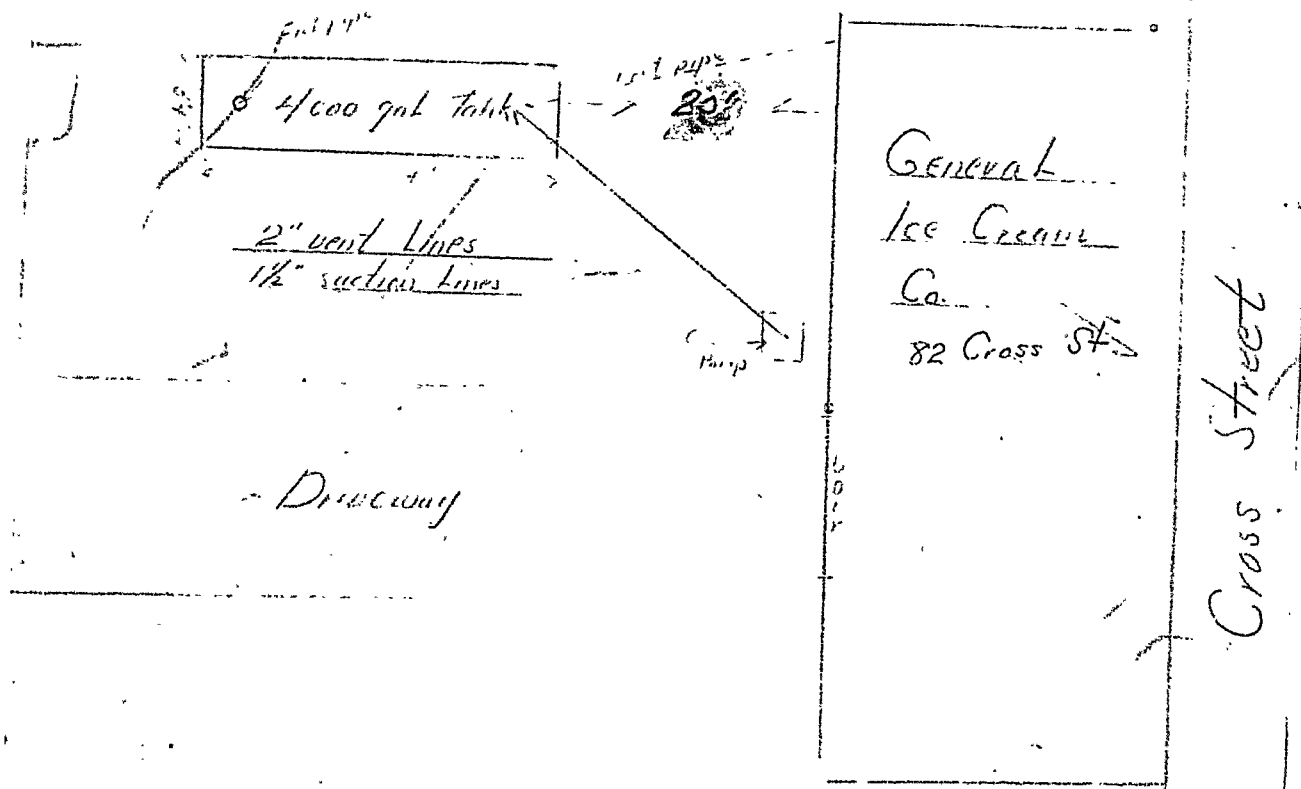 Fill Pipe
4000 gal Tank
20'
2" vent Lines
1½" suction Lines
Pump
General
Ice Cream
Co.
82 Cross St.
Driveway
Cross Street